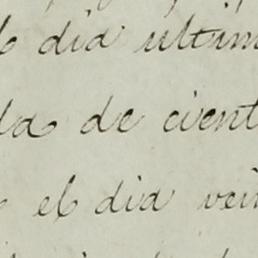 el dia ultim
da de cient
el dia vein